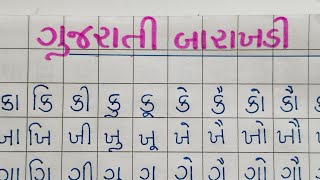 ગુજરાતી બારાખડી
કા કિ કી કુ કૂ કે કૈ કો કૌ
ખા ખિ ખી ખુ ખૂ ખે ખૈ ખો ખૌ
ગા ગિ ગી ગુ ગૂ ગે ગૈ ગો ગૌ